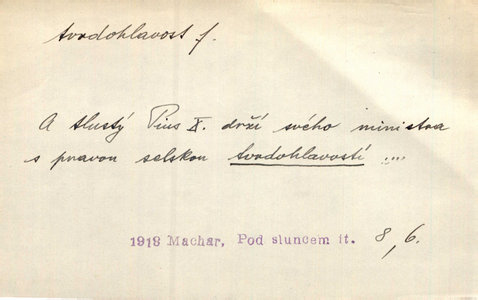 tvrdohlavost f.
A tlustý Pius X. drží svého ministra
s pravou selskou tvrdohlavostí ...
1918 Machar, Pod sluncem it. 8, 6.